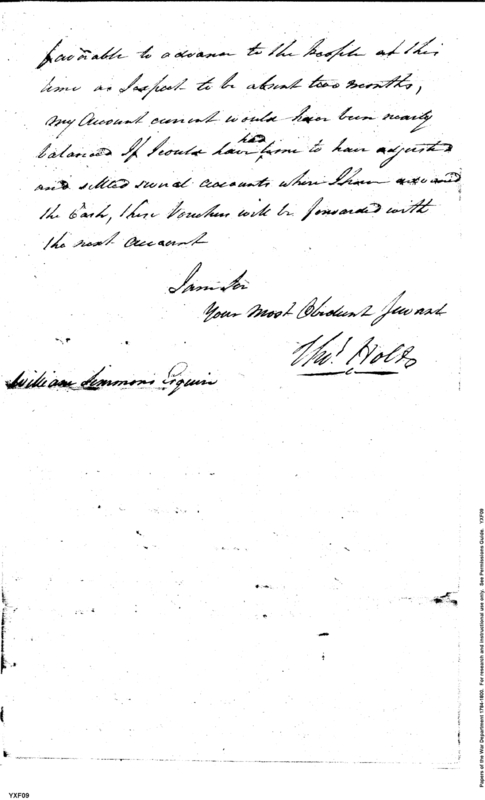 favorable to advance to the People at this
time as I expect to be absent two months,
my Account current would have been nearly
balanced If I could have had time to have adjusted
and settled several accounts where I have advanced
the Cash, these Vouchers will be forwarded with
the next account
I am Sir
Your Most Obedient Servant
Thos Holt
William Simmons Esquire
YXF09
Papers of the War Department 1784-1800. For research and instructional use only. See Permissions Guide. YXF09